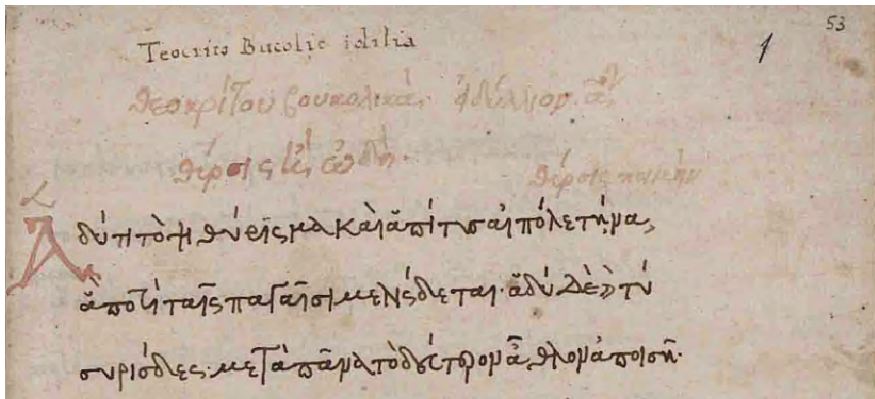 53
1
Teocrito Bucolic idilia
θεοκρίτου βουκολικά· εἰδύλλιον α^ον
θύρσις ἢ ᾠδή·
θύρσις ποιμήν
Ἁδύ τι τὸ ψιθύρισμα καὶ ἁ πίτυς αἰπόλε τήνα,
ἁ ποτὶ ταῖς παγαῖσι μελίσδεται· ἁδύ δὲ καὶ τύ
συρίσδες· μετὰ πᾶνα τὸ δεύτερον ἆθλον ἀποισῇ·